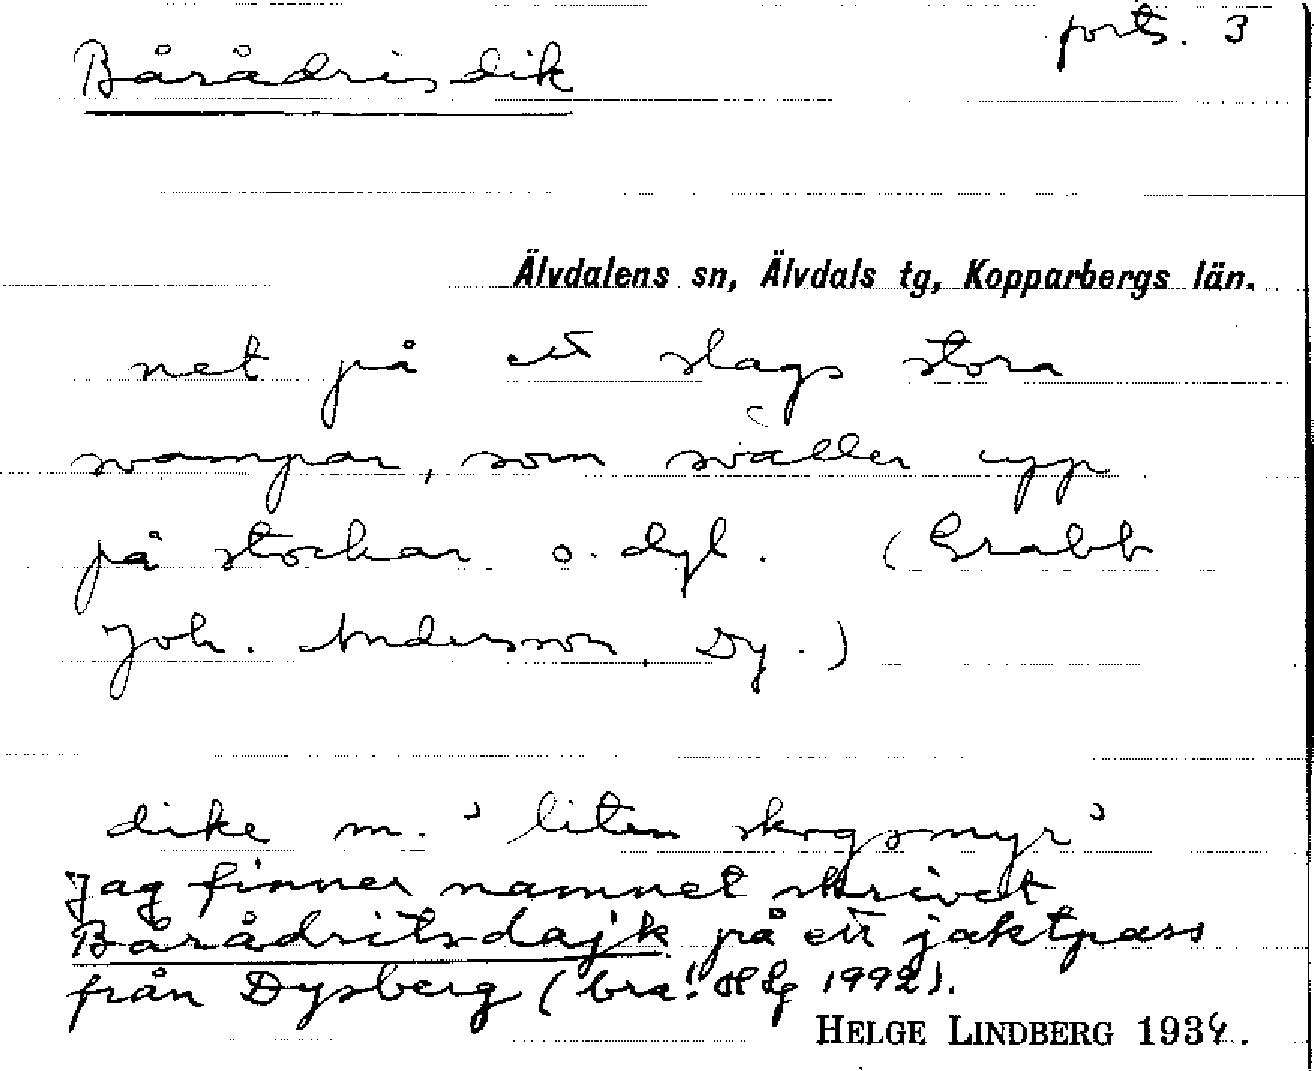 Bårådrisdik
forts. 3
Älvdalens sn, Älvdals tg, Kopparbergs län.
net på ett slags stora
svampar, som sväller upp
på stockar o. dyl. (Grabb
Joh. Andersson, Dy.)
dike m. "liten skogsmyr"
Jag finner namnet skrivet
Bårådritsdajk på ett jaktpass
från Dysberg (bra! HLg 1992).
HELGE LINDBERG 1934.